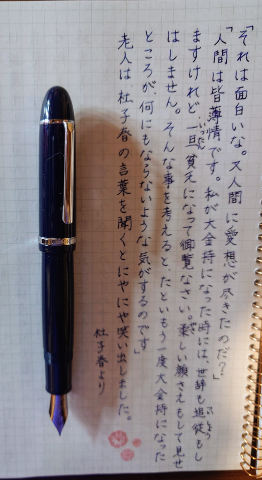 「それは面白いな。又人間に愛想が尽きたのだ？」
「人間は皆薄情です。私が大金持になった時には、世辞も追従もし
ますけれど、一旦貧乏になって御覧なさい。柔しい顔さえもして見せ
はしません。そんな事を考えると、たといもう一度大金持になった
ところが、何にもならないような気がするのです」
老人は杜子春の言葉を聞くとにやにや笑い出しました。
杜子春より